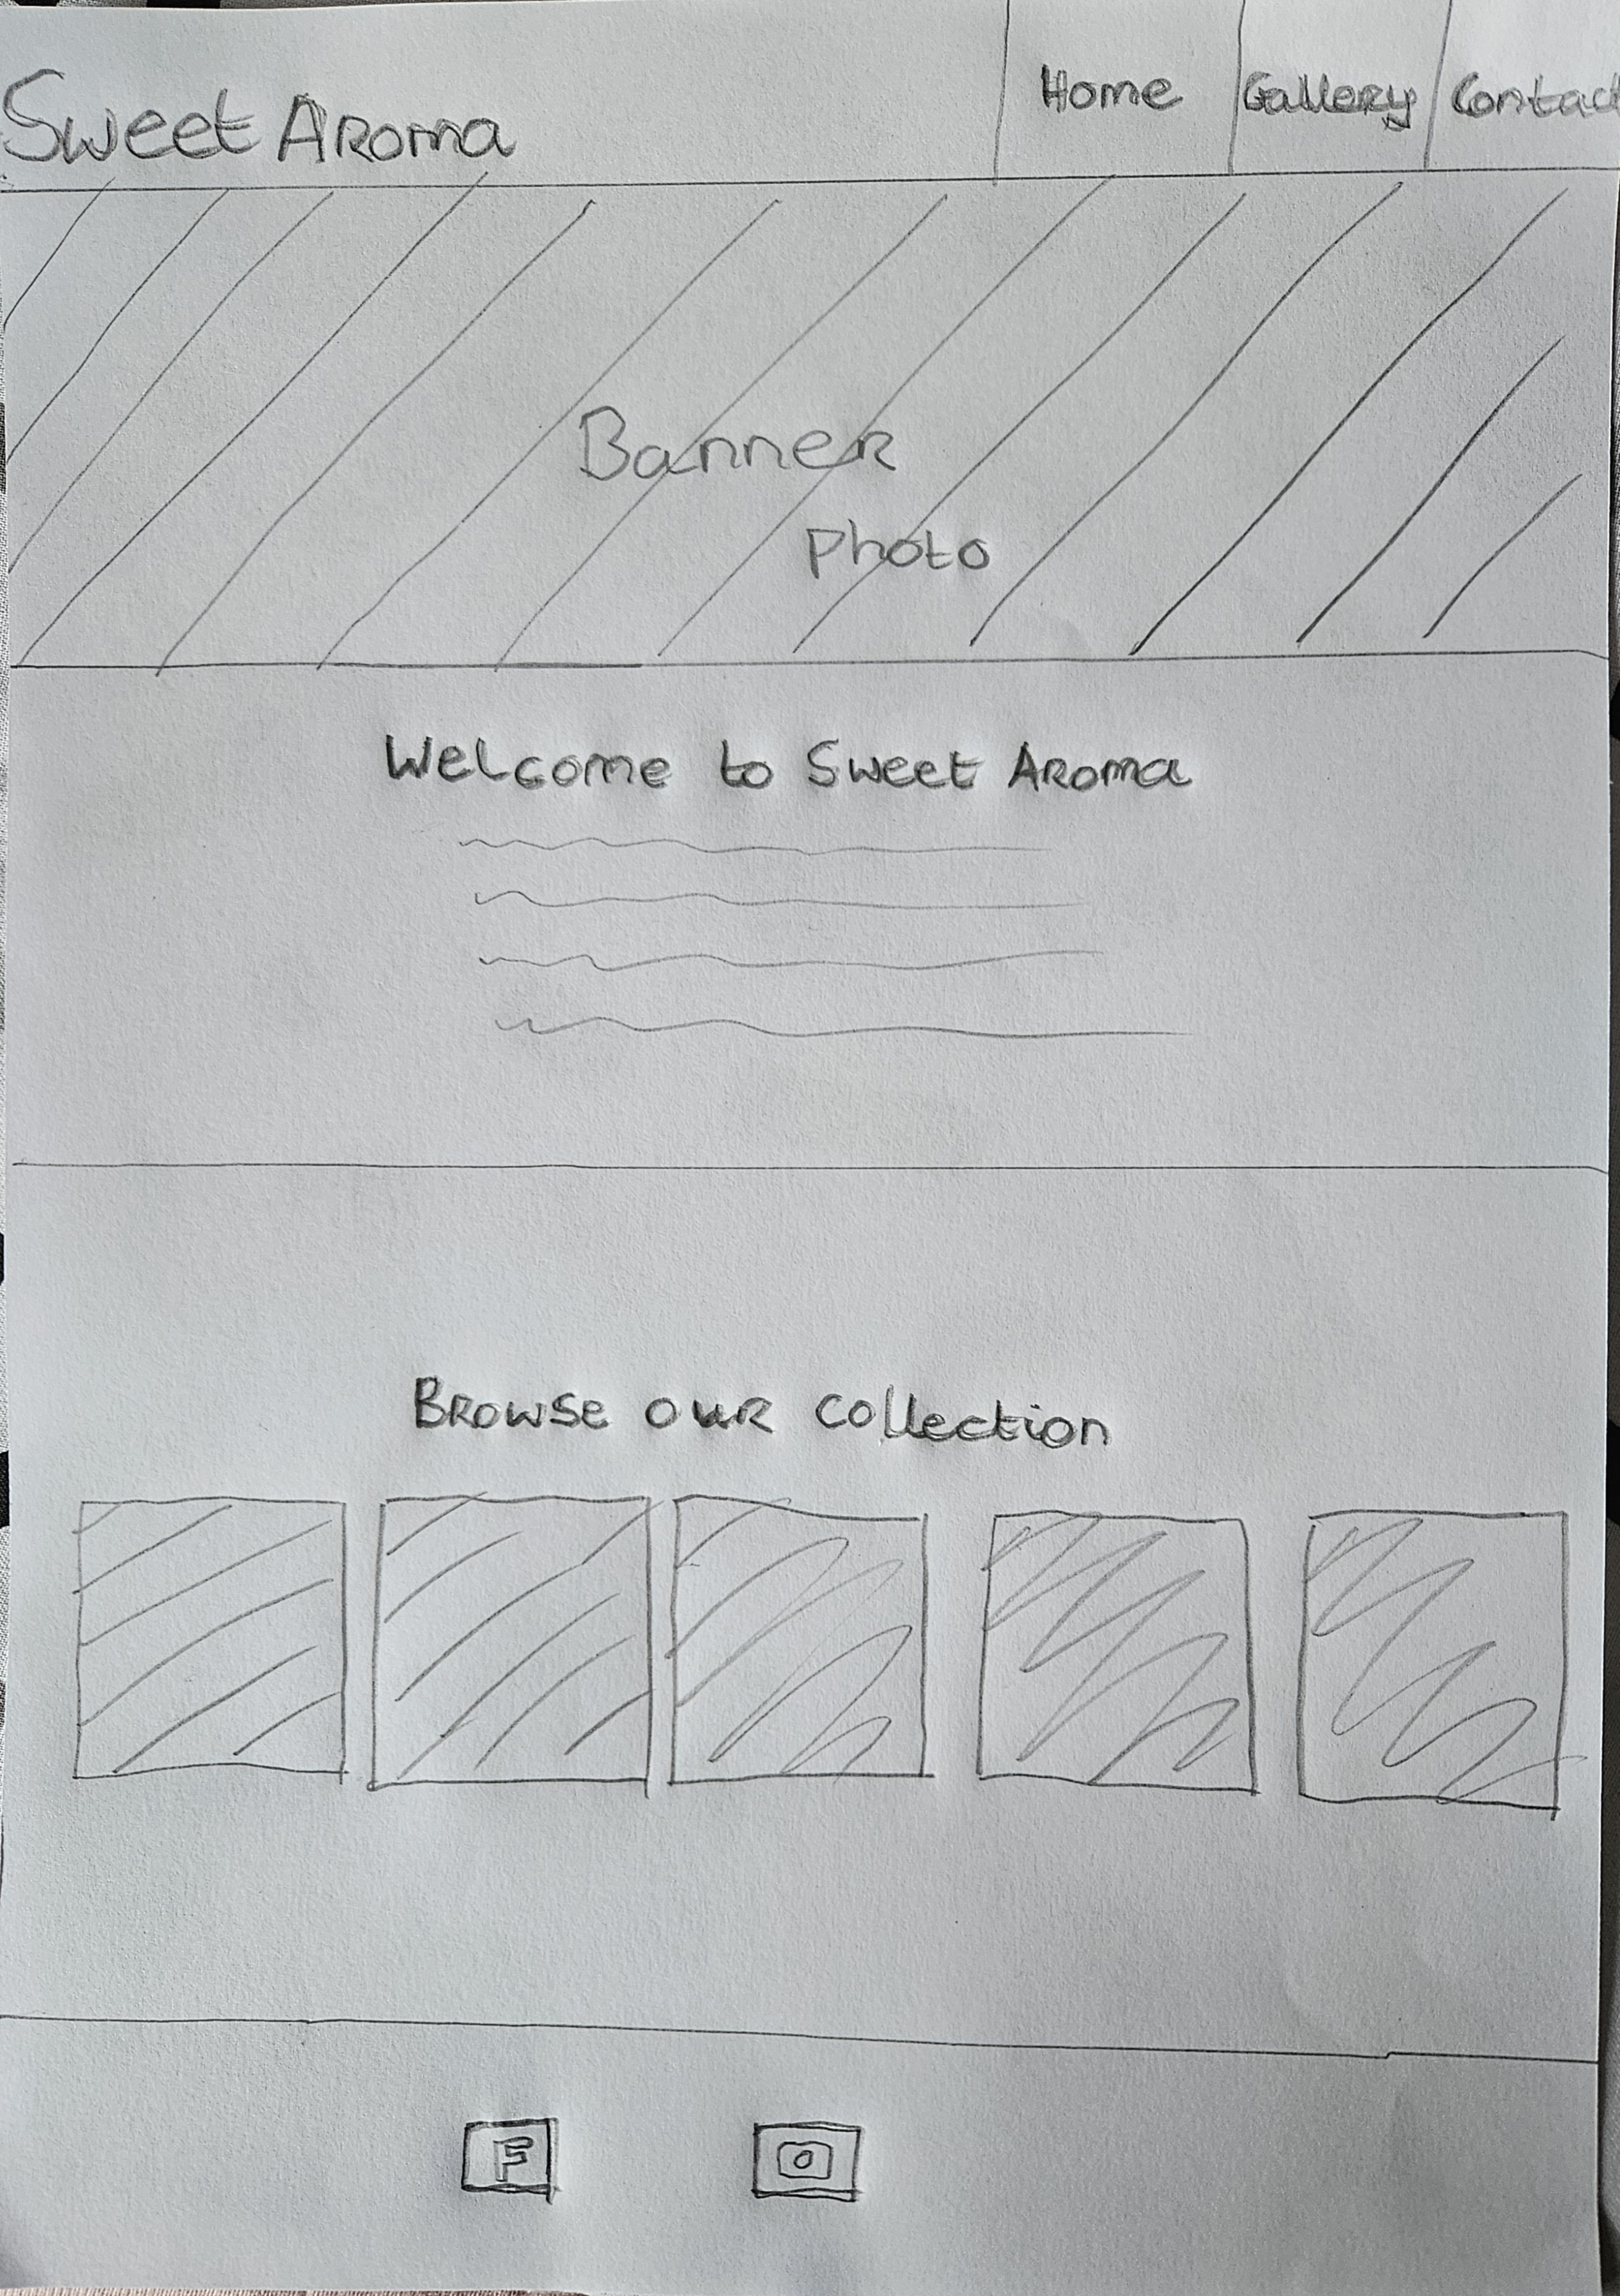 Sweet Aroma
Home Gallery Contact
Banner
photo
Welcome to Sweet Aroma
Browse our collection
F